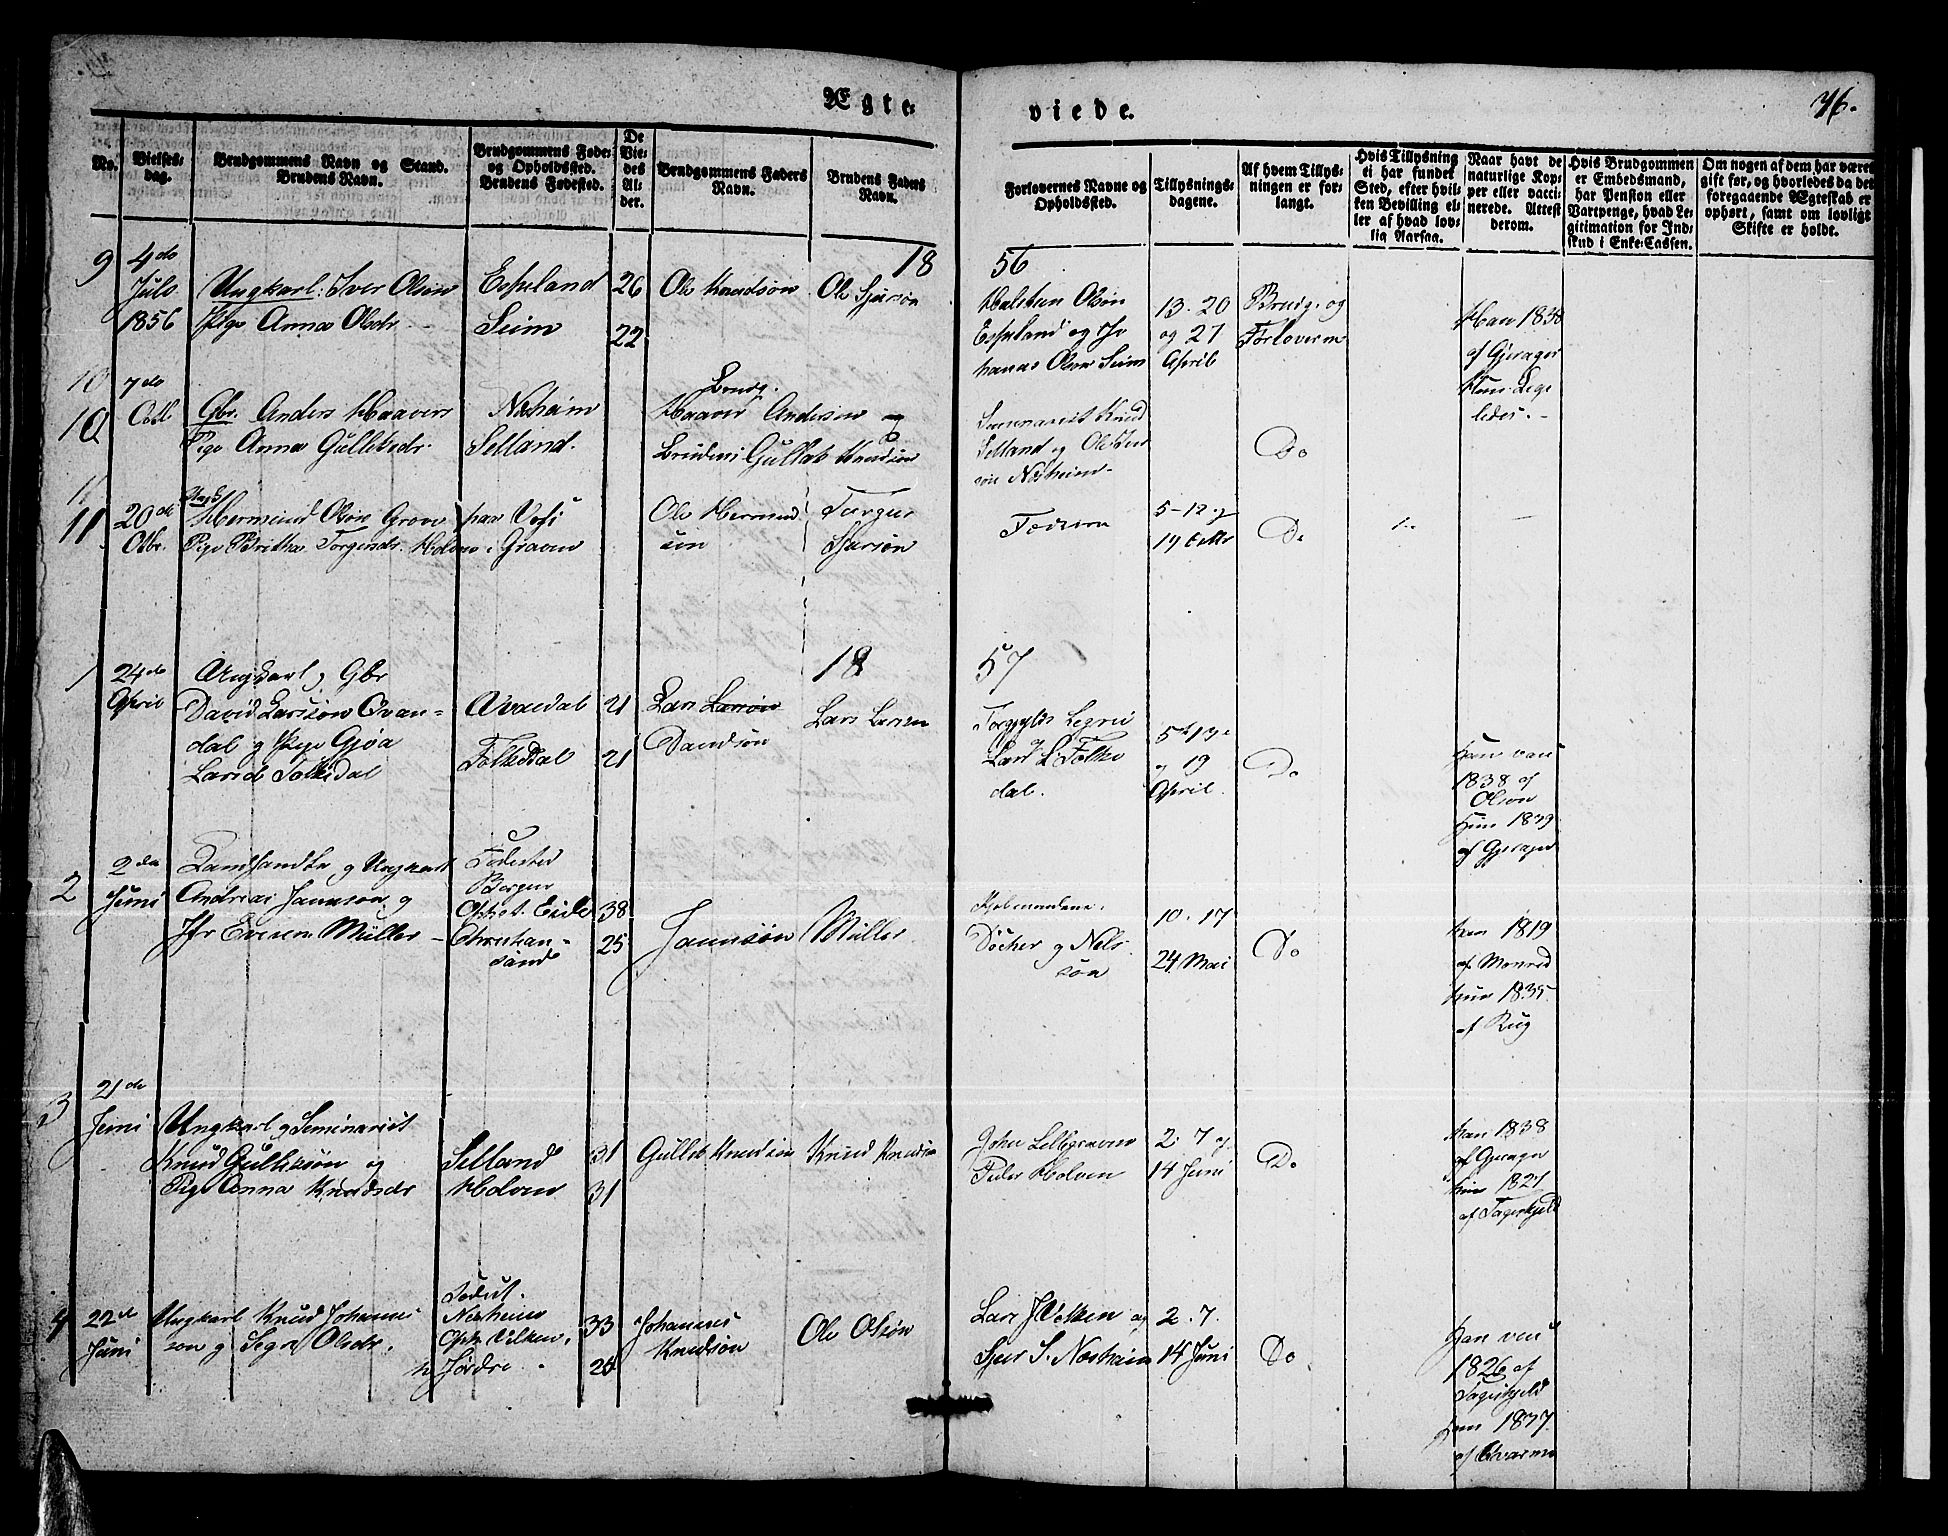 Ægte-
viede.
76.
No.
Vielses-
dag.
Brudgommens Navn og Stand.
Brudens Navn.
Brudgommens Føde-
og Opholdssted.
Brudens Fødested.
De
Vie-
des
Al-
der.
Brudgommens Faders
Navn.
Brudens Faders
Navn.
Forlovernes Navne og
Opholdssted.
Tillysnings-
dagene.
Af hvem Tillys-
ningen er for-
langt.
Hvis Tillysning
ei har fundet
Sted, efter hvil-
ken Bevilling el-
ler af hvad lov-
lig Aarsag.
Naar havt de
naturlige Kop-
per eller vacci-
nerede. Attest
derom.
Hvis Brudgommen
er Embedsmand,
har Pension eller
Vartpenge, hvad Le-
gitimation for Ind-
skud i Enke-Cassen.
Om nogen af dem har været
gift før, og hvorledes da det
foregaaende Ægteskab er
ophørt, samt om lovligt
Skifte er holdt.
18
56
9
4do
Juli
1856
Ungkarl: Iver Olsøn
Pige Anna Olsdr.
Espeland
Seim
26
22
Ole Knudsøn
Ole Sjursøn
Halsten Olsøn
Espeland og Jo
hanas Olsøn Seim
13. 20
og 27
April
Brudg. og
Forloverne
Han 1838
af Gjerager
Hun Lige
ledes.
10
7do
10
Octb
Gbr. Anders Haavers
Pige Anna Gulleksdr.
Næsheim
Selland.
Brudg.
Haaver Anderson og
Brudens Gullek Knudsøn
Seminarist Knud
Selland og Ole Iver
søn Næsheim
Do
11
11
20de
Octbr.
Ungk
Hermund Olsøn Grove
Pige Britha Torgersdr. Holven
paa Voss
i Graven
Ole Hermund
søn
Torger
Sjursøn
5-12 og
19 Octbr
Do
18
57
1
24de
April
Ungkarl og Gbr
David Larssøn Qvan-
dal og Pige Gjøa
Larsd Folkedal
Qvandal
Folkedal
21
21
Lars Larsøn
Davidsøn
Lars Larsen
Torgjyls Legrei
og
Lars L. Folke
dal.
5te 13
og 19
April
Do
Han vac
1838 af
Olsøn
Hun 1839
af Gjerager
2
2den
Juni
Landhandler og Ungkarl
Andreas Jannson og
Jfr Evesen Müller
Fødested
Bergen
Opht. Eide
Christian-
sand
38
25
Jannsøn
Müller
Kjøbmændene
Døcker og Nels-
søn
10. 17
24 Mai
Do
han 1819
af Monrad
hun 1835
af Rug
3
21de
Juni
Ungkarl og Seminarist
Knud Gulleksøn og
Pige Anna Knudsdr
Selland
Holven
31
31
Gullek Knudsøn
Knud Knudsøn
John Lillegraven
Peder Holven
2. 7 og
14 Juni
Do
han 1838
af Gjerager
hun 1821
af Fageskjeld
4
22de
Juni
Ungkarl Knud Johannes
søn og Segri Olsdr.
Fødest.
Næsheim
Oph. Vilken
Jørdre
33
24
Johannes
Knudsøn
Ole Olsøn
Lars J Velken og
Sjur S. Næsheim
2. 7.
14 Juni
Do
han vac
1826 af
Fageskjeld
hun 1837
af Qvarme